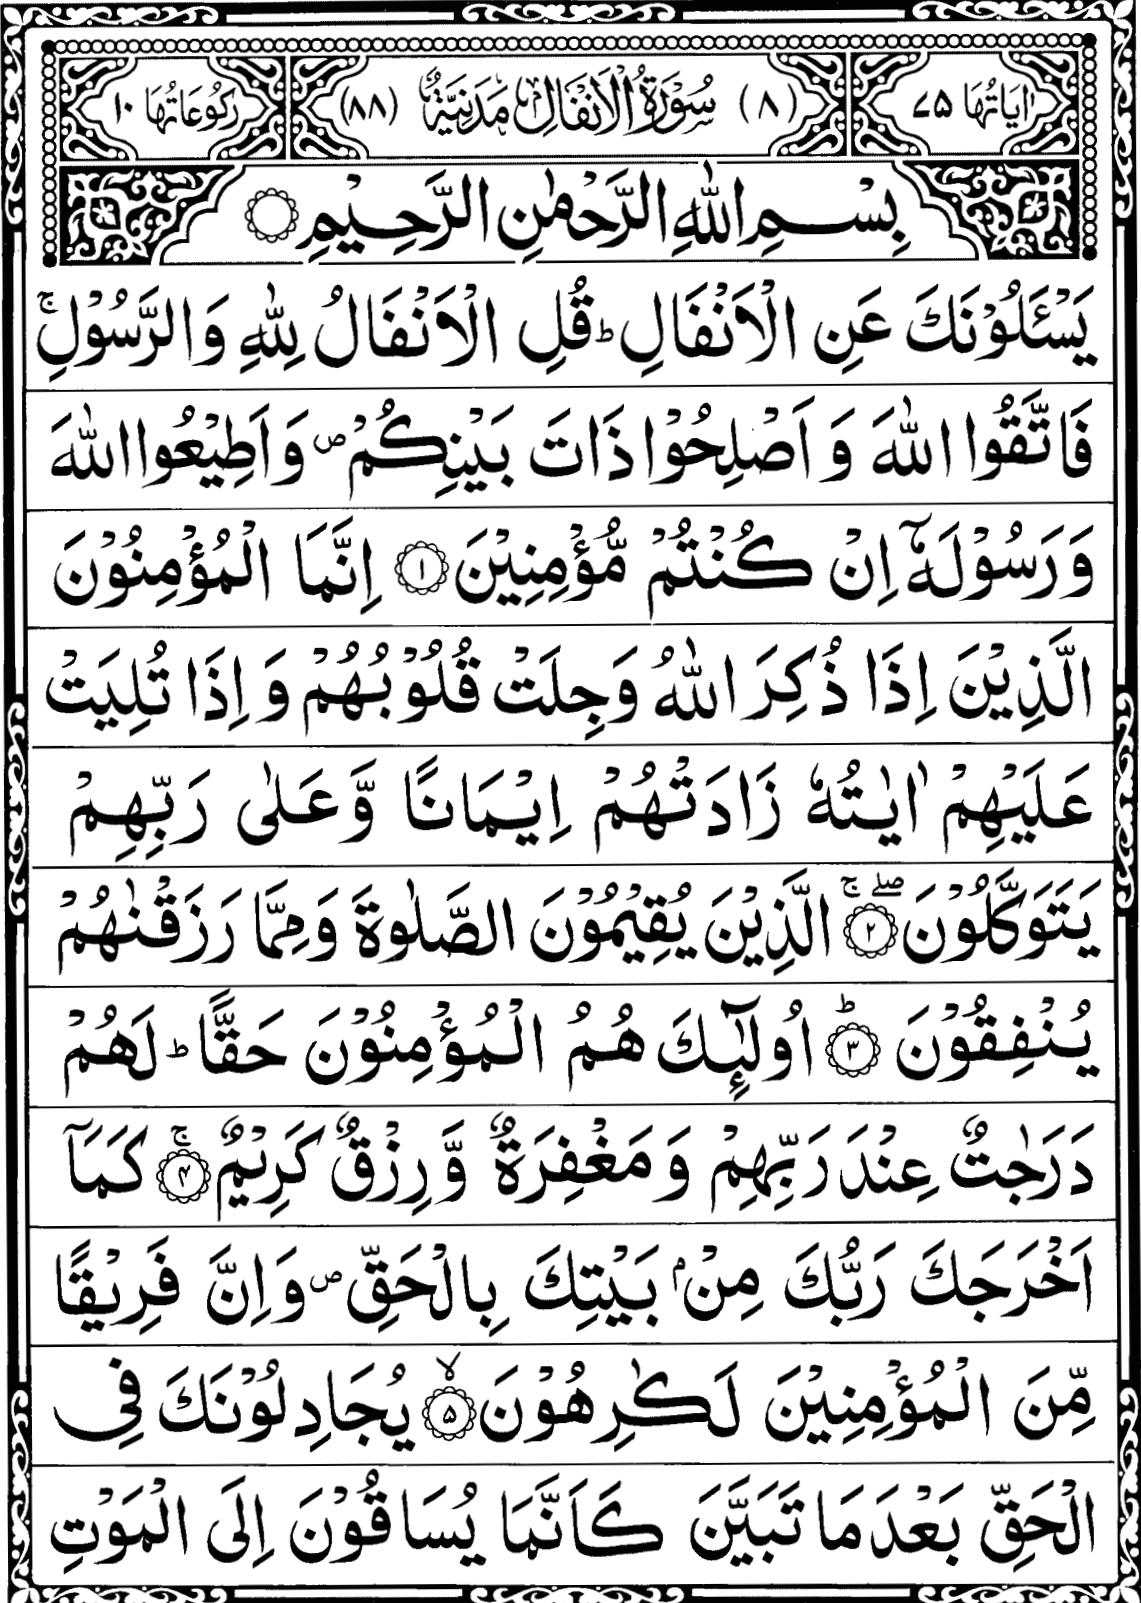 اٰيَاتُهَا ۷۵ (۸) سُوْرَةُ الْاَنْفَالِ مَدَنِيَّةٌ (۸۸) رُكُوْعَاتُهَا ۱۰
بِسْمِ اللّٰهِ الرَّحْمٰنِ الرَّحِيْمِ ۝
يَسْـَٔلُوْنَكَ عَنِ الْاَنْفَالِ ؕ قُلِ الْاَنْفَالُ لِلّٰهِ وَالرَّسُوْلِ ۚ
فَاتَّقُوا اللّٰهَ وَ اَصْلِحُوْا ذَاتَ بَيْنِكُمْ ۪ وَ اَطِيْعُوا اللّٰهَ
وَ رَسُوْلَهٗۤ اِنْ كُنْتُمْ مُّؤْمِنِيْنَ ۝۱ اِنَّمَا الْمُؤْمِنُوْنَ
الَّذِيْنَ اِذَا ذُكِرَ اللّٰهُ وَجِلَتْ قُلُوْبُهُمْ وَ اِذَا تُلِيَتْ
عَلَيْهِمْ اٰيٰتُهٗ زَادَتْهُمْ اِيْمَانًا وَّ عَلٰى رَبِّهِمْ
يَتَوَكَّلُوْنَ ۝۲ ۖۚ الَّذِيْنَ يُقِيْمُوْنَ الصَّلٰوةَ وَ مِمَّا رَزَقْنٰهُمْ
يُنْفِقُوْنَ ۝۳ ؕ اُولٰٓئِكَ هُمُ الْمُؤْمِنُوْنَ حَقًّا ؕ لَهُمْ
دَرَجٰتٌ عِنْدَ رَبِّهِمْ وَ مَغْفِرَةٌ وَّ رِزْقٌ كَرِيْمٌ ۝۴ ۚ كَمَاۤ
اَخْرَجَكَ رَبُّكَ مِنْۢ بَيْتِكَ بِالْحَقِّ ۪ وَ اِنَّ فَرِيْقًا
مِّنَ الْمُؤْمِنِيْنَ لَكٰرِهُوْنَ ۝۵ ۙ يُجَادِلُوْنَكَ فِي
الْحَقِّ بَعْدَ مَا تَبَيَّنَ كَاَنَّمَا يُسَاقُوْنَ اِلَى الْمَوْتِ